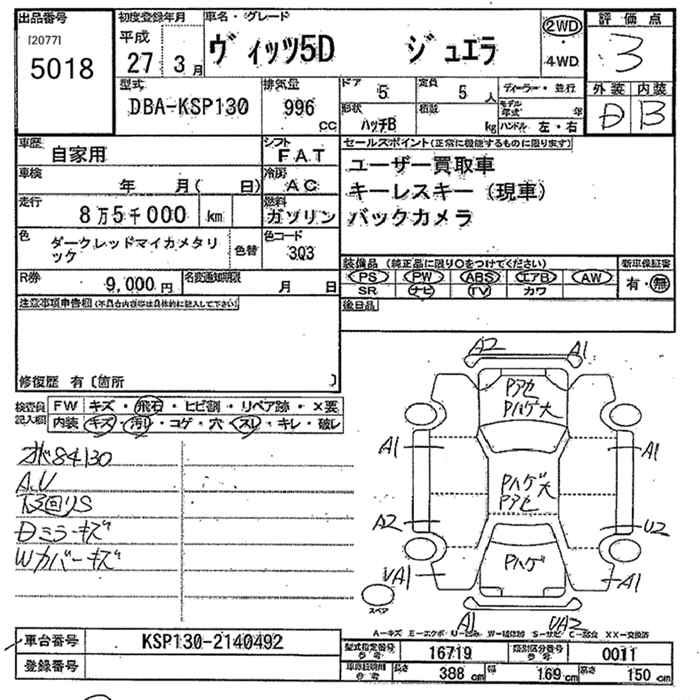 出品番号 初度登録年月 車名・グレード 評価点
[2077] 平成 2WD
5018 27年 3月 ヴィッツ5D ジュエラ ・4WD 3
型式 排気量 ドア 5 定員 5人 ディーラー・並行 外装 内装
DBA-KSP130 996 CC 形状 ハッチB 積載 kg モデル年式 年 D B
ハンドル 左・右
車歴 自家用 シフト FAT セールスポイント(正常に機能するものに限ります)
車検 年 月( 日) 冷房 AC ユーザー買取車
走行 8万5千000 km 燃料 ガソリン キーレスキー(現車)
色 ダークレッドマイカメタリック 色替 色コード 3Q3 バックカメラ
R券 9,000円 名変通知期限 月 日 装備品(純正品に限り○をつけてください) 新車保証書
PS PW ABS エアB AW 有・無
SR ナビ TV カワ
注意事項申告欄(不具合内容等は具体的に記入して下さい) 後日品
修復歴 有〔箇所 〕
検査員記入欄 FW キズ・飛石・ヒビ割・リペア跡・×要
内装 キズ・汚れ・コゲ・穴・スレ・キレ・破レ
84130
A.U
下回りS
Dミラーキズ
Wカバーキズ
A2 A1
Pアセ
Pハゲ大
A1 A1
Pハゲ大
Pアセ
A2 U2
Pハゲ
UA1 A1
スペア
A1 UA2
A-キズ E-エクボ U-凹み W-補修跡 S-サビ C-腐食 XX-交換済
車台番号 KSP130-2140492 型式指定番号 16719 類別区分番号 0011
登録番号 長さ 388 cm 幅 169 cm 高さ 150 cm